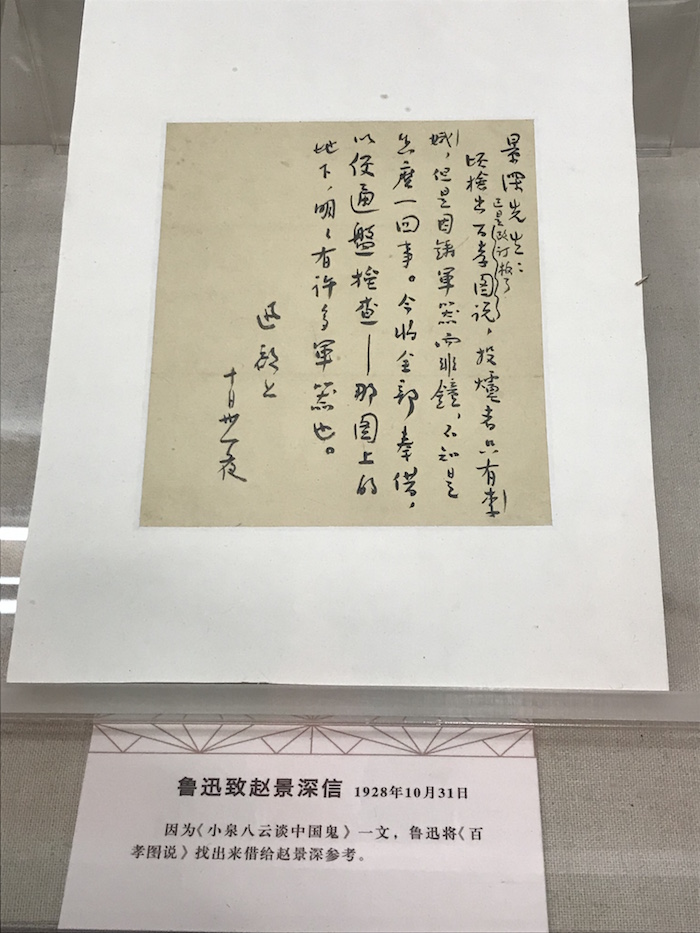 景深先生：
顷检出百孝图说，投爐者只有李
已是改订板了
娥，但是因铸軍器而非鐘，不知是
怎麼一回事。今将全部奉借，
以便通盤检查——那图上的
地下，明々有许多軍器也。
迅啟上
十月卅一夜
鲁迅致赵景深信 1928年10月31日
因为《小泉八云谈中国鬼》一文，鲁迅将《百
孝图说》找出来借给赵景深参考。